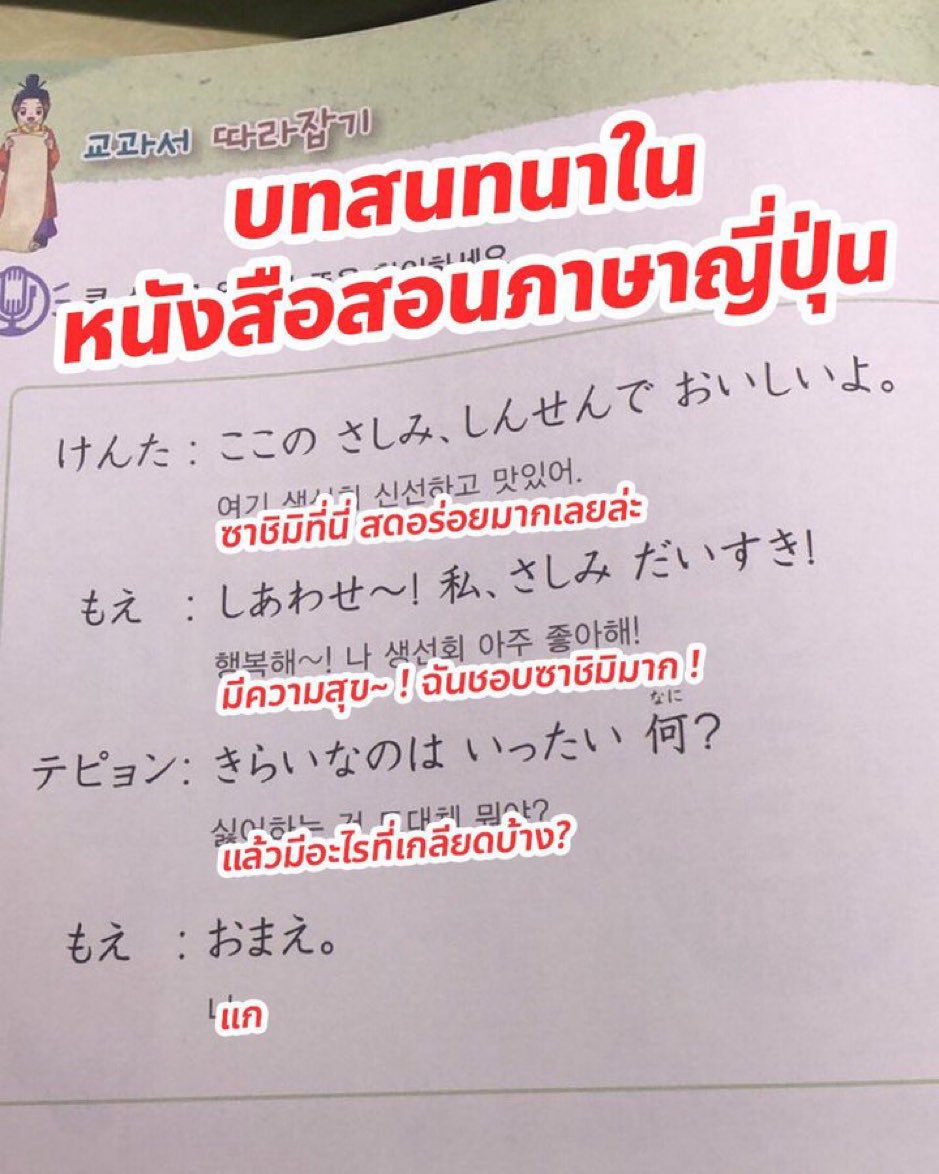 교과서 따라잡기
บทสนทนาใน
หนังสือสอนภาษาญี่ปุ่น
けんた : ここの さしみ、しんせんで おいしいよ。
여기 생선회 신선하고 맛있어.
ซาชิมิที่นี่ สดอร่อยมากเลยล่ะ
もえ : しあわせ～! 私、さしみ だいすき!
행복해~! 나 생선회 아주 좋아해!
มีความสุข~ ! ฉันชอบซาชิมิมาก !
なに
テピョン: きらいなのは いったい 何?
싫어하는 건 도대체 뭐야?
แล้วมีอะไรที่เกลียดบ้าง?
もえ : おまえ。
แก